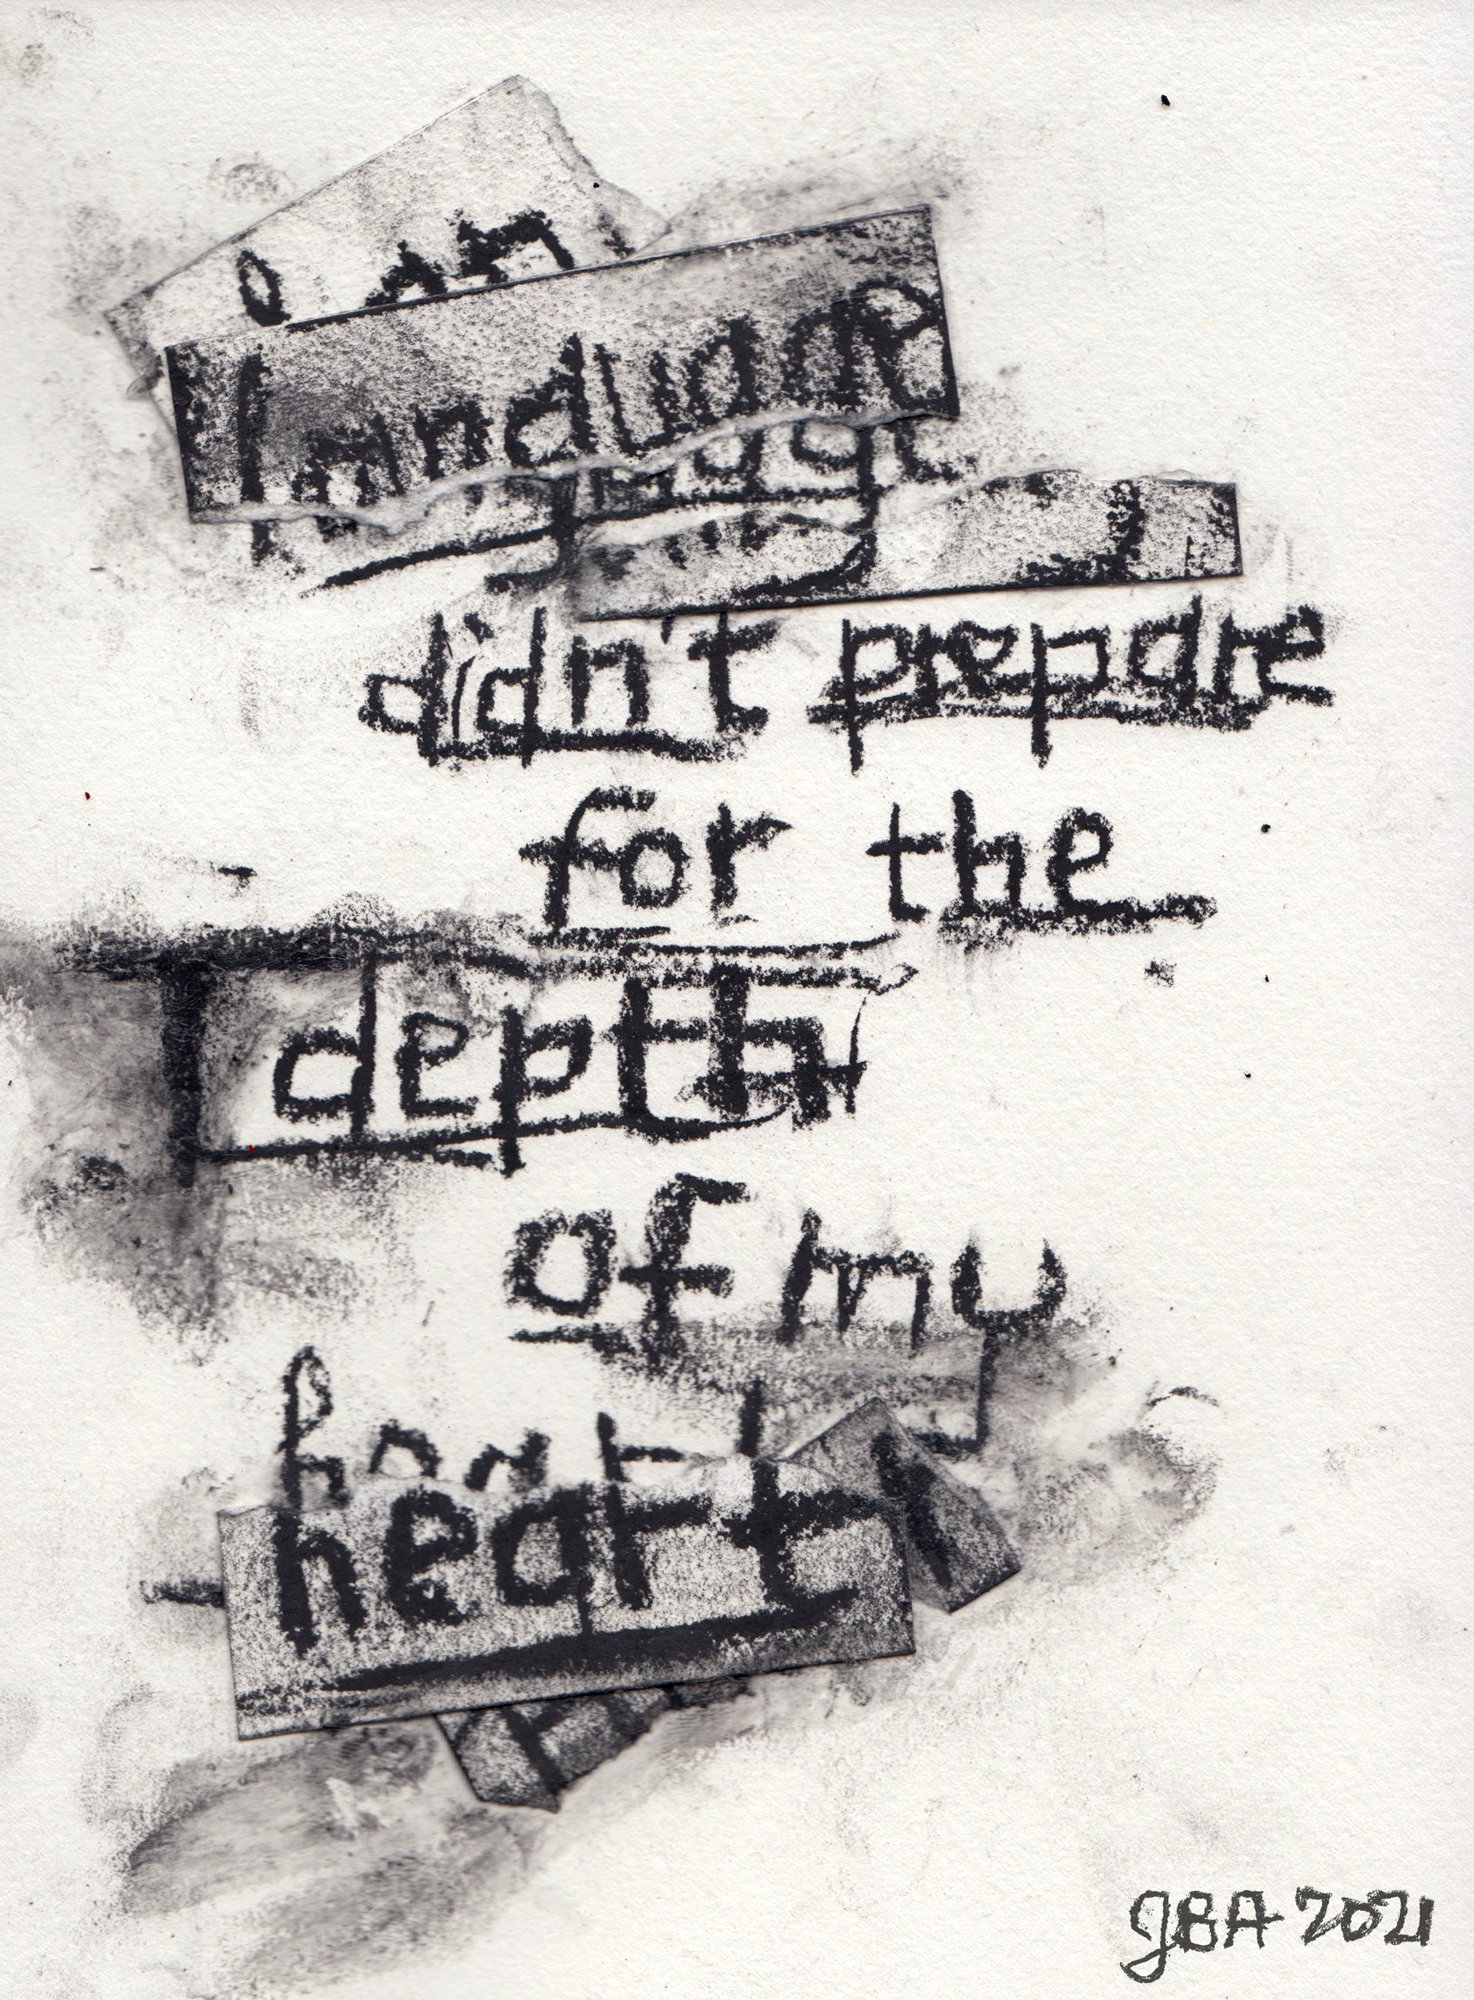 language
didn't prepare
for the
depth
of my
heart
JBA 2021